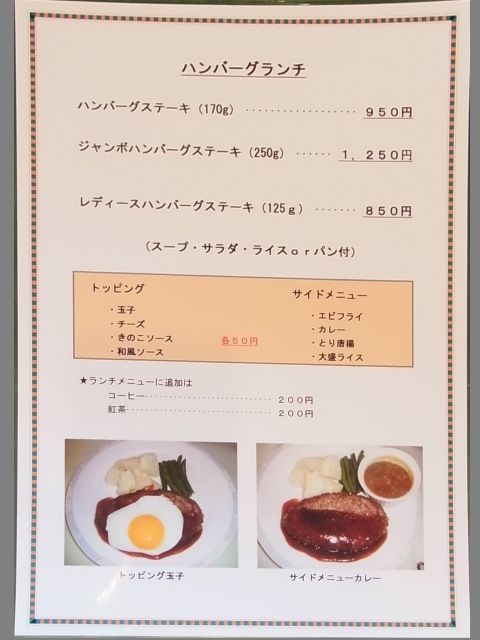 ハンバーグランチ
ハンバーグステーキ（170g） ・・・・・・・・・・・・・・・・・・・ ９５０円
ジャンボハンバーグステーキ（250g） ・・・・・・ １，２５０円
レディースハンバーグステーキ（125ｇ） ・・・・・・・ ８５０円
（スープ・サラダ・ライスｏｒパン付）
トッピング サイドメニュー
・玉子 ・エビフライ
・チーズ ・カレー
・きのこソース 各５０円 ・とり唐揚
・和風ソース ・大盛ライス
★ランチメニューに追加は
コーヒー・・・・・・・・・・・・・・・・・・・・・・・・・ ２００円
紅茶・・・・・・・・・・・・・・・・・・・・・・・・・・・・ ２００円
トッピング玉子 サイドメニューカレー